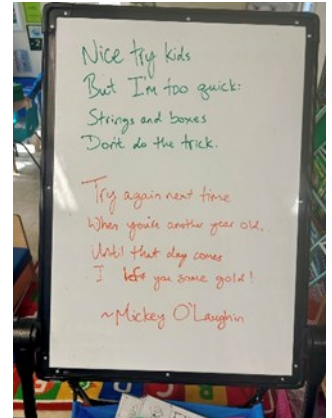 Nice try kids
But I'm too quick:
Strings and boxes
Don't do the trick.
Try again next time
When you're another year old.
Until that day comes
I left you some gold!
~Mickey O'Laughin